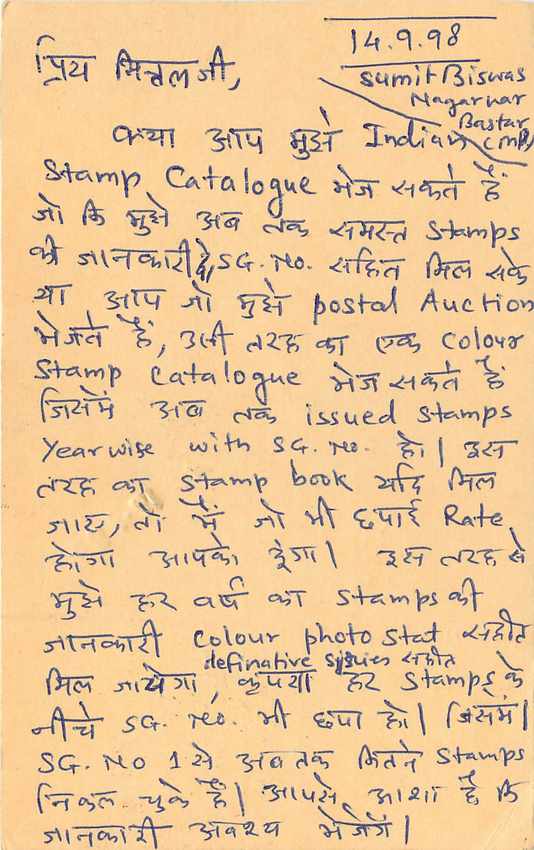 14.9.98
प्रिय मित्तल जी,
Sumit Biswas
Nagarnar
Bastar
(MP)
क्या आप मुझे Indian
Stamp Catalogue भेज सकते हैं
जो कि मुझे अब तक समस्त Stamps
की जानकारी दे, SG. No. सहित मिल सके
या आप जो मुझे postal Auction
भेजते हैं, उसी तरह का एक Colour
Stamp Catalogue भेज सकते हैं
जिसमें अब तक issued stamps
Year wise with SG. No. हो। इस
तरह का stamp book यदि मिल
जाए, तो मैं जो भी छपाई Rate
होगा आपको दूंगा। इस तरह से
मुझे हर वर्ष का stamps की
जानकारी Colour photo stat सहीत
definative सहीत
मिल जायेगा, कृपया हर stamps के
नीचे SG. No. भी छपा हो। जिसमें
SG. No 1 से अब तक कितने stamps
निकल चुके हैं। आपसे आशा है कि
जानकारी अवश्य भेजेगें।